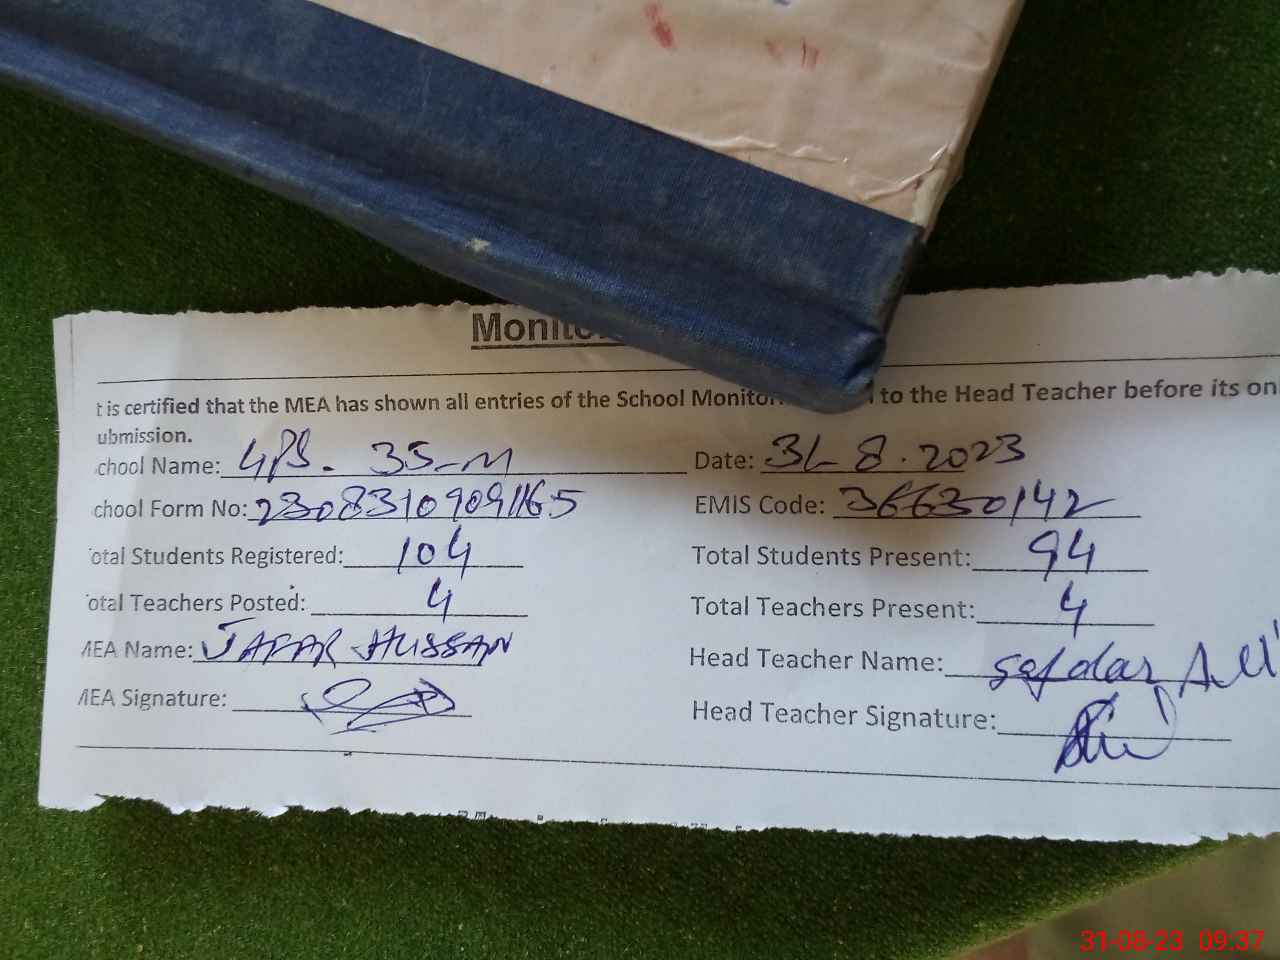 Monito
t is certified that the MEA has shown all entries of the School Monitor to the Head Teacher before its on
ubmission.
chool Name: GPS. 35-M Date: 31-8.2023
chool Form No: 23083109091165 EMIS Code: 36630142
otal Students Registered: 104 Total Students Present: 94
otal Teachers Posted: 4 Total Teachers Present: 4
MEA Name: JAFAR HUSSAN Head Teacher Name: Safdar Ali
MEA Signature: Head Teacher Signature:
31-08-23 09:37